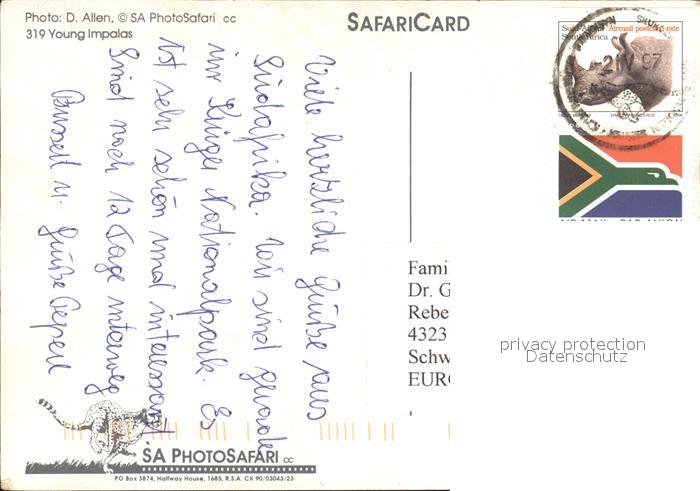 Photo: D. Allen, © SA PhotoSafari cc
319 Young Impalas
SAFARICARD
Suid-Afrika Airmail postcard rate
South Africa
2 IV 97
Viele herzliche Grüße aus
Südafrika. Wir sind gerade
im Krüger Nationalpark. Es
ist sehr schön und interessant.
Sind noch 12 Tage unterwegs
Bussell u. Grüße
Famil
Dr. G
Rebe
4323
Schw
EURO
privacy protection
Datenschutz
SA PHOTOSAFARI CC
PO Box 3874, Halfway House, 1685, R.S.A. CK 90/03043/23